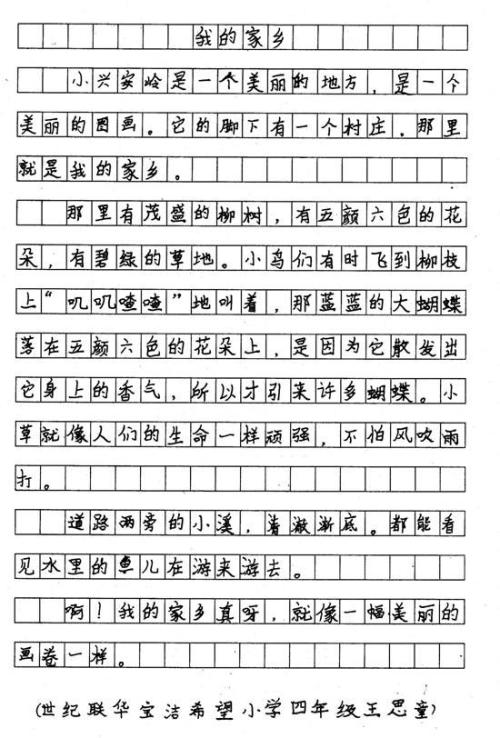 我的家乡
小兴安岭是一个美丽的地方，是一个
美丽的图画。它的脚下有一个村庄，那里
就是我的家乡。
那里有茂盛的柳树，有五颜六色的花
朵，有碧绿的草地。小鸟们有时飞到柳枝
上“叽叽喳喳”地叫着，那蓝蓝的大蝴蝶
落在五颜六色的花朵上，是因为它散发出
它身上的香气，所以才引来许多蝴蝶。小
草就像人们的生命一样顽强，不怕风吹雨
打。
道路两旁的小溪，清澈渐底。都能看
见水里的鱼儿在游来游去。
啊！我的家乡真呀，就像一幅美丽的
画卷一样。
(世纪联华宝洁希望小学四年级王思童)